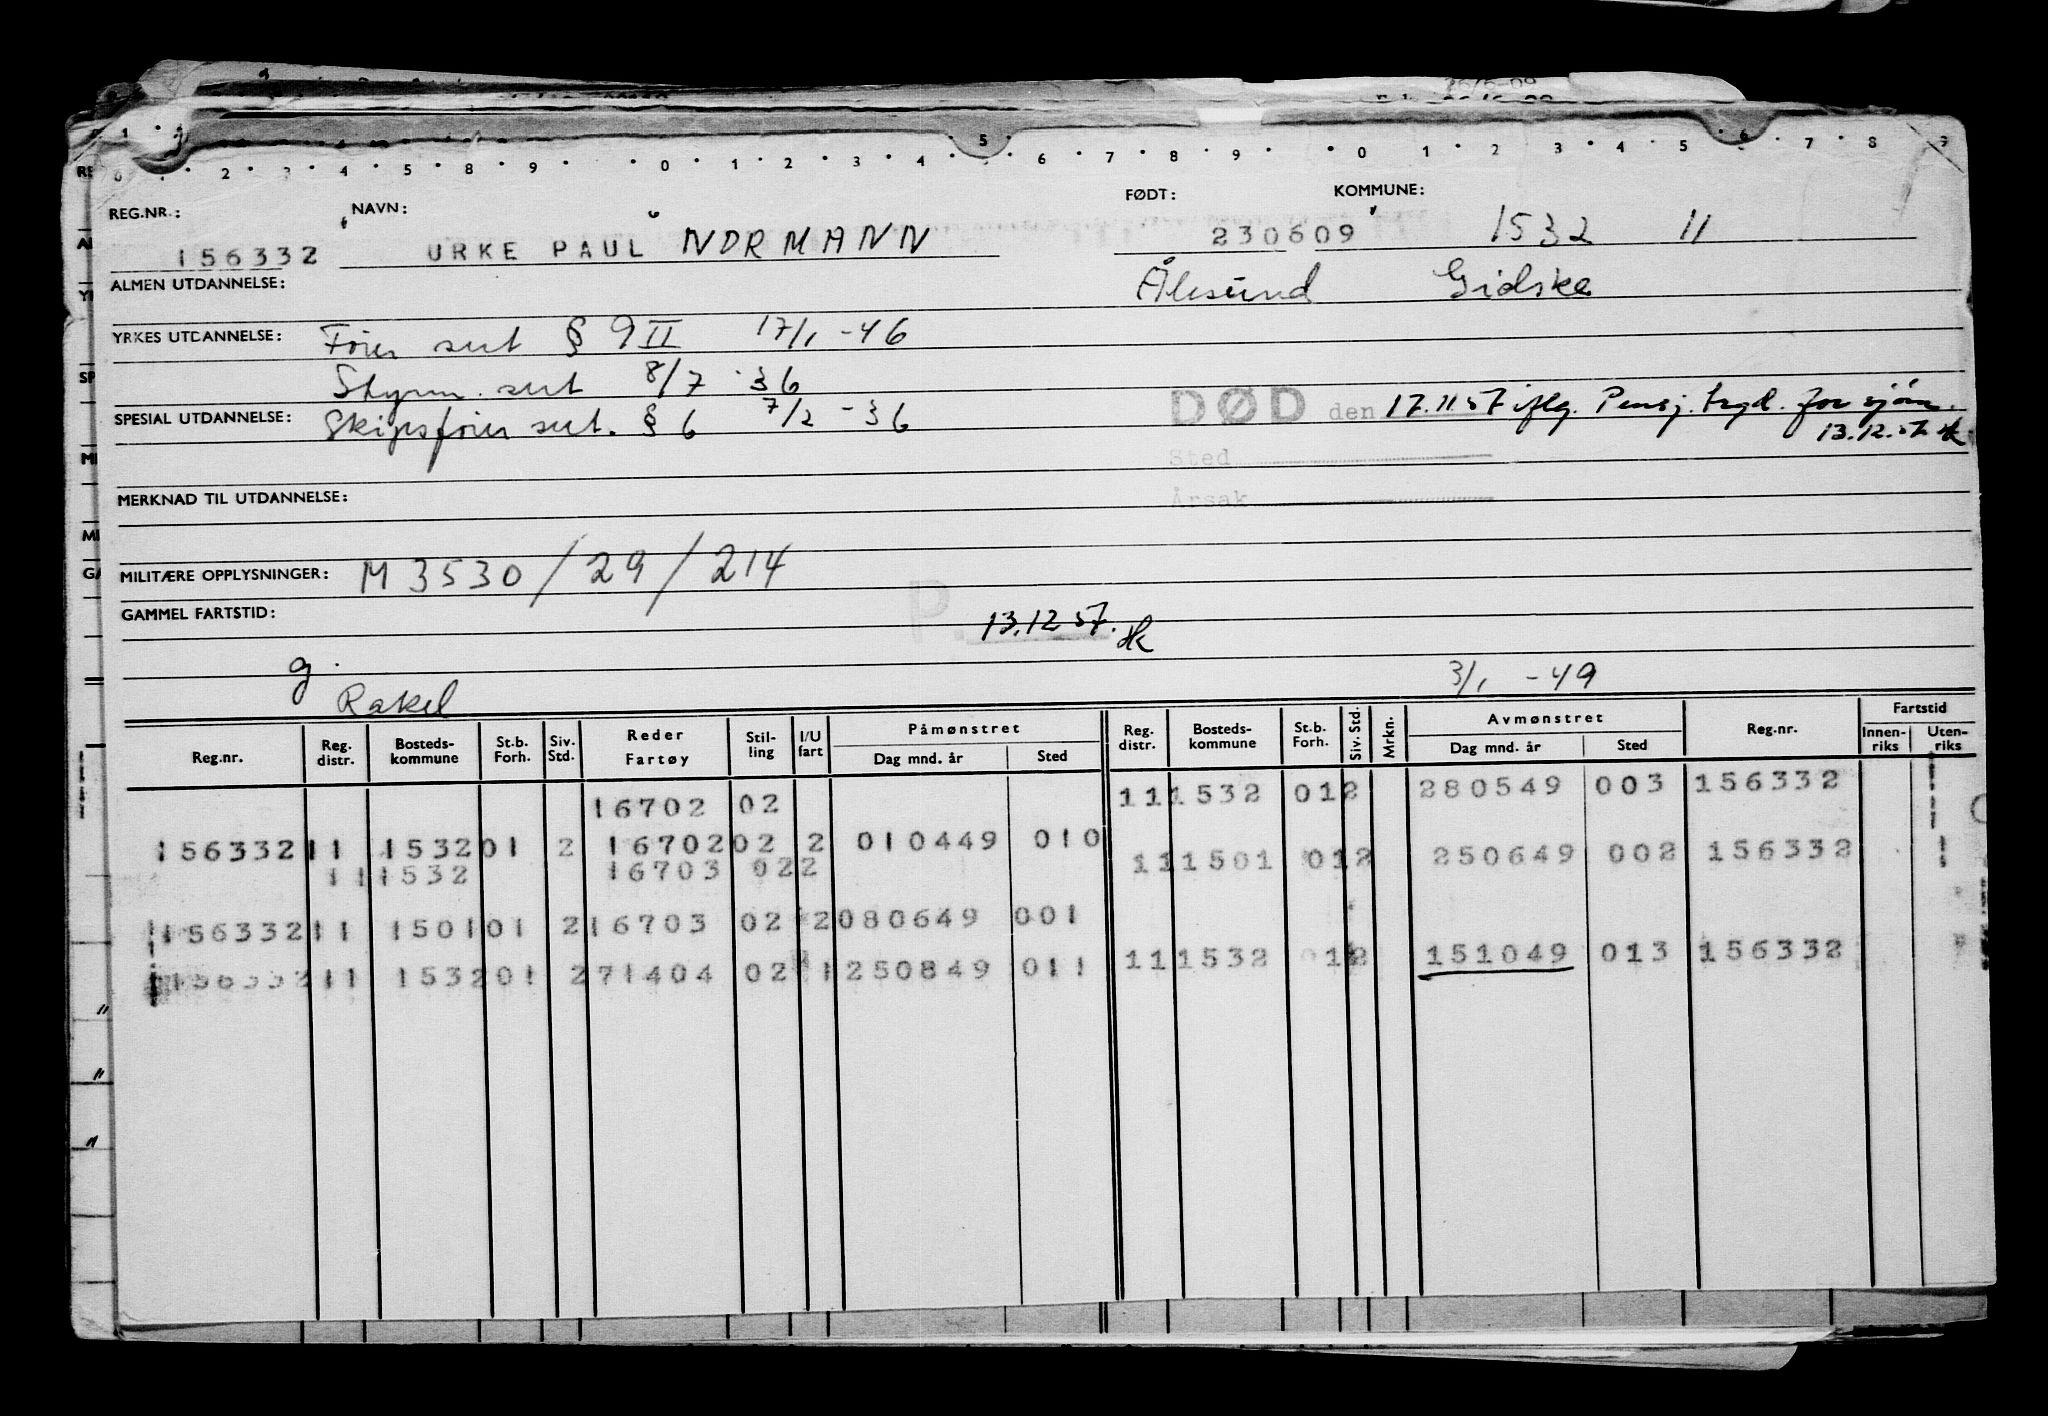 REG.NR.: NAVN: FØDT: KOMMUNE:
156332 URKE PAUL NORMANN 230609 1532 11
ALMEN UTDANNELSE: Ålesund Gidske
YRKES UTDANNELSE: Fører sert § 9 II 17/1 -46
Styrm. sert 8/7 36
DØD den 17.11.57 iflg. Pensj. trygd. for sjøm.
SPESIAL UTDANNELSE: Skipsfører sert. § 6 7/2 -36
13.12.57
Sted
MERKNAD TIL UTDANNELSE:
Årsak
MILITÆRE OPPLYSNINGER: M 3530/29/214
P.
GAMMEL FARTSTID:
13.12 57.
g.
Rakel 3/1 -49
Reg.nr. Reg. distr. Bosteds-kommune St.b. Forh. Siv. Std. Reder Fartøy Stil-ling I/U fart Påmønstret Dag mnd. år Sted Reg. distr. Bosteds-kommune St.b. Forh. Siv. Std. Mrkn. Avmønstret Dag mnd. år Sted Reg.nr. Fartstid Innen-riks Uten-riks
16702 02 11 1532 01 2 280549 003 156332
156332 11 1532 01 2 16702 02 2 010449 010
11 1532 16703 02 2 11 1501 01 2 250649 002 156332
156332 11 1501 01 2 16703 02 2 080649 001
156332 11 1532 01 2 71404 02 1 250849 011 11 1532 01 2 151049 013 156332